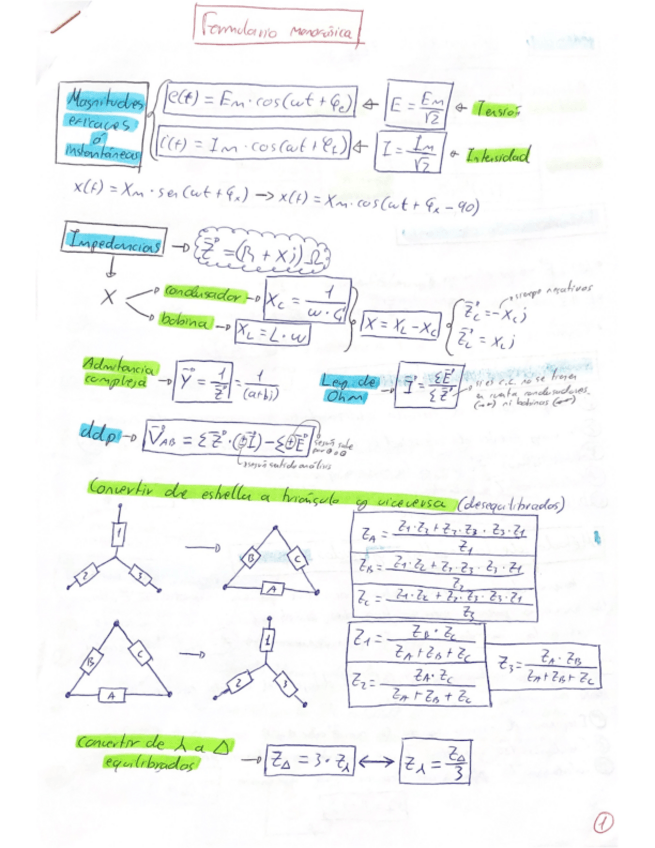 Formulario Monofásica
Magnitudes eficaces ó instantáneas
e(t) = Em·cos(ωt + φe) ← E = Em/√2 ← Tensión
i(t) = Im·cos(ωt + φi) ← I = Im/√2 ← Intensidad
x(t) = Xm·sen(ωt + φx) → x(t) = Xm·cos(ωt + φx - 90)
Impedancias → Z = (R + Xj) Ω
X
condensador → Xc = 1/(ω·C)
bobina → XL = L·ω
X = XL - Xc
Zc = -Xcj → siempre negativos
ZL = XLj
Admitancia compleja → Y = 1/Z = 1/(a+bj)
Ley de Ohm → I = ΣE/ΣZ
si es c.c. no se traen a cuenta condensadores ni bobinas
ddp → VAB = ΣZ·(±I) - Σ±E
según sale por ⊕ o ⊖
según sentido análisis
Convertir de estrella a triángulo y viceversa (desequilibrados)
1
2
3
→
B
C
A
ZA = (Z1·Z2+Z2·Z3·Z3·Z1)/Z1
ZB = (Z1·Z2+Z2·Z3·Z3·Z1)/Z2
Zc = (Z1·Z2+Z2·Z3·Z3·Z1)/Z3
B
C
A
→
1
2
3
Z1 = (ZB·Zc)/(ZA+ZB+Zc)
Z2 = (ZA·Zc)/(ZA+ZB+Zc)
Z3 = (ZA·ZB)/(ZA+ZB+Zc)
Convertir de ⅄ a Δ
equilibrados → ZΔ = 3·Z⅄ ↔ Z⅄ = ZΔ/3
1